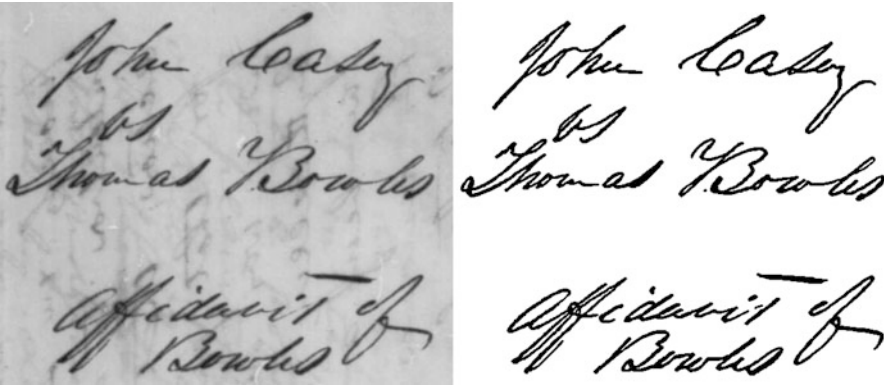 John Casey
vs
Thomas Bowles
Affidavit of
Bowles
John Casey
vs
Thomas Bowles
Affidavit of
Bowles